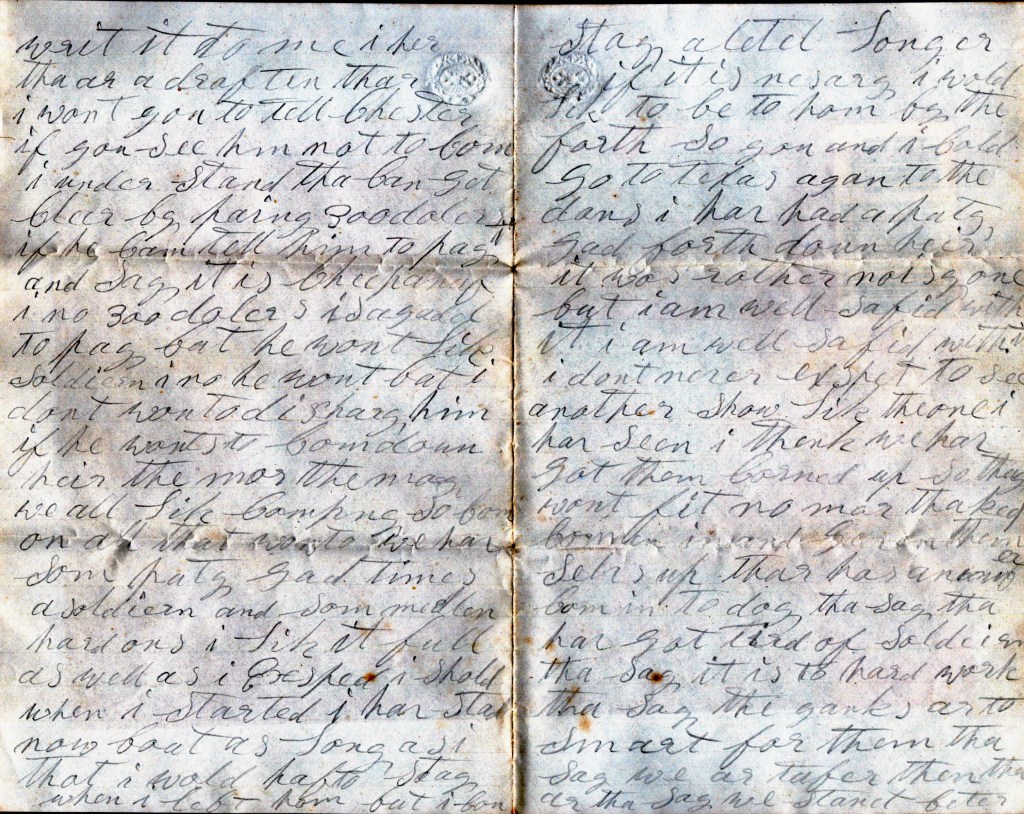 wait it to me i her
tha ar a draften thar
i wont you to tell Chester
if you see him not to Com
i under stand tha Can get
Cleer by paing 300 dolers
if he Cam tell him to pay it
and Say it is Cheep anuf
i no 300 dolers is a gudd
to pay but he wont Lik
Soldiern i no he wont but i
dont wont to discharg him
if he wonts to Com doun
heir the mor the
we all Lik Compne So Com
on all that wonts we har
Som paty gad times
a soldiern and Som medlen
hard ons i Lik it full
as well as i Exesped i Shold
when i Started i har Stad
now boat as Long as i
that i wold hafto Stay
when i left hom but i Can
Stay a letel Longer
if it is nesary i wold
Lik to be to hom by the
forth So you and i Cold
go to Texas agan to the
dans i har had a paty
gad forth doun heir
it was rother noisy one
but i am well Safid with
it i am well Safid with it
i dont never exspet to See
another Show Lik the one i
har Seen i thenk we har
got them Corned up So thay
wont fit no mor tha keep
Comin in and given them
Selvs up thar has
Com in to day tha Say tha
har got tird of Soldiern
tha Say it is to hard work
tha Say the yanks ar to
Smart for them tha
Say we ar tufer then tha
ar tha Say we Stand beter